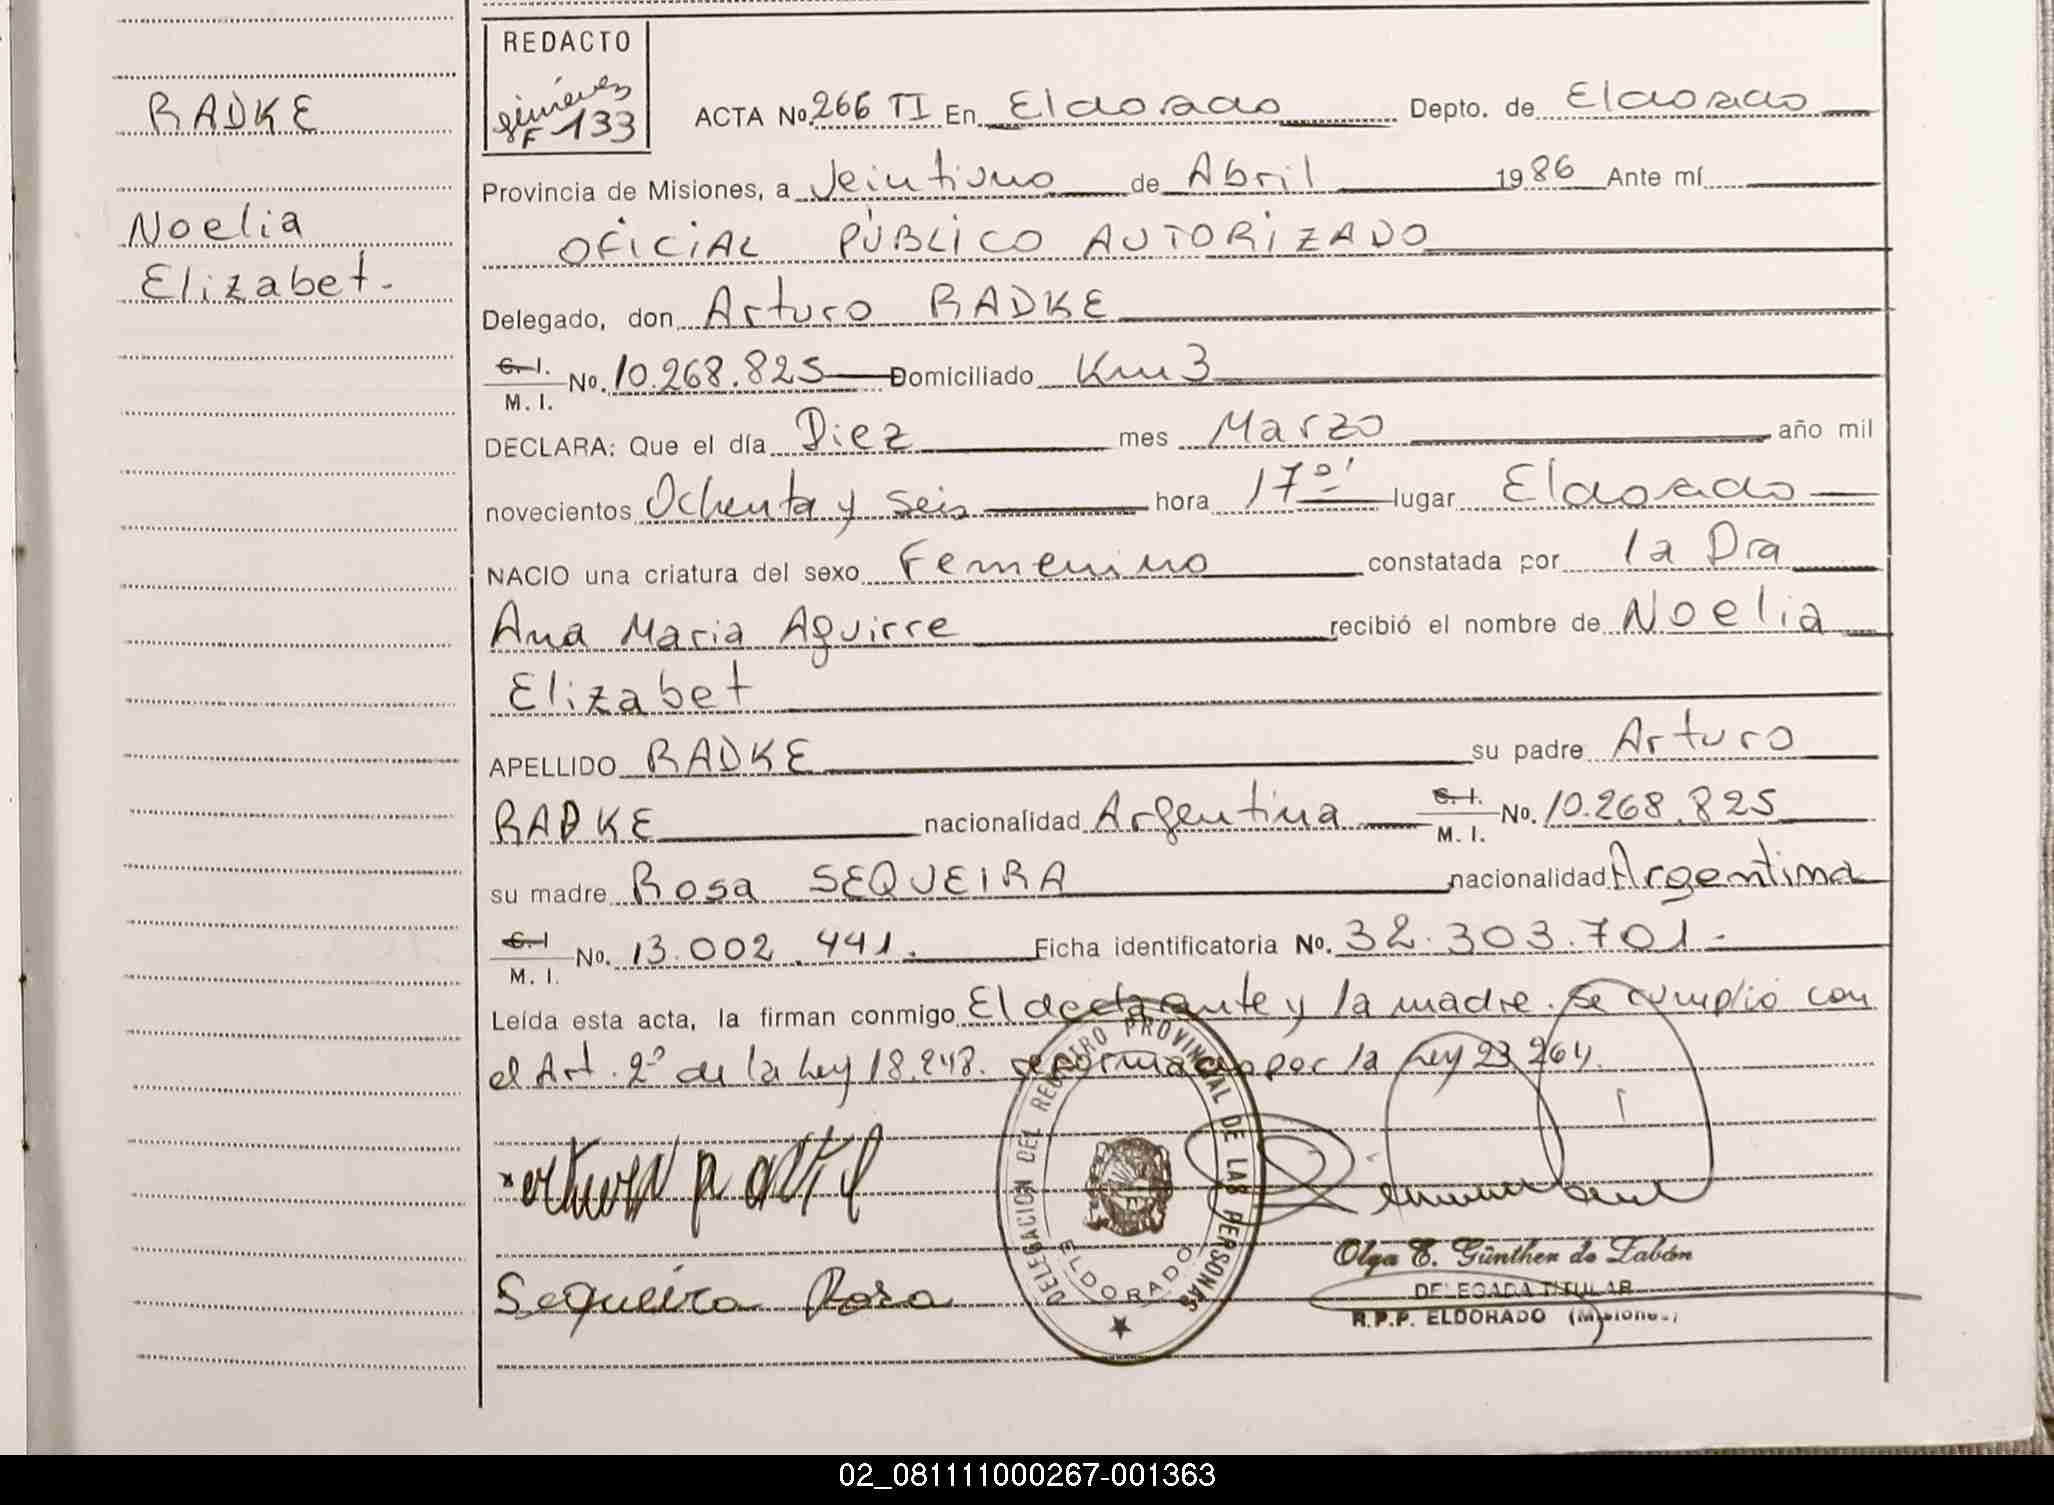 RADKE
Noelia
Elizabet.-
REDACTO
Giménez
F 133
ACTA No. 266 TI En Eldorado Depto. de Eldorado
Provincia de Misiones, a Veintiuno de Abril 1986 Ante mí
OFICIAL PÚBLICO AUTORIZADO
Delegado, don Arturo RADKE
C. I.
M. I. No. 10.268.825 Domiciliado Km 3
DECLARA: Que el día Diez mes Marzo año mil
novecientos Ochenta y seis hora 17º' lugar Eldorado
NACIO una criatura del sexo Femenino constatada por la Dra
Ana Maria Aguirre recibió el nombre de Noelia
Elizabet
APELLIDO RADKE su padre Arturo
RADKE nacionalidad Argentina C. I. M. I. No. 10.268.825
su madre Rosa SEQUEIRA nacionalidad Argentina
C. I
M. I. No. 13.002.441. Ficha identificatoria No. 32.303.701.-
Leída esta acta, la firman conmigo El declarante y la madre. se cumplió con
el Art. 2º de la Ley 18.248. reformado por la Ley 23.264.
DELEGACION DEL REGISTRO PROVINCIAL DE LAS PERSONAS
ELDORADO
Sequeira Rosa
Olga E. Günther de Zabán
DELEGADA TITULAR
R.P.P. ELDORADO (Misiones)
02_081111000267-001363